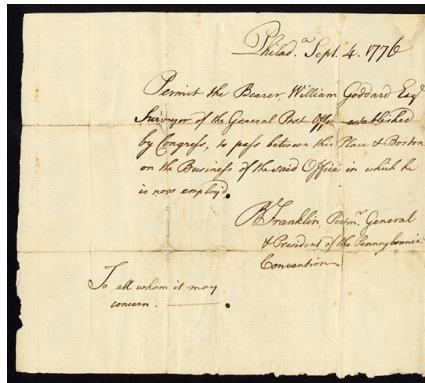 Philad.a Sept. 4. 1776
Permit the Bearer, William Goddard Esq.r
Surveyor of the General Post Office established
by Congress, to pass between this Place & Boston
on the Business of the said Office in which he
is now employ'd.
B Franklin, Postm.r General
& President of the Pennsylvania
Convention
To all whom it may
concern.